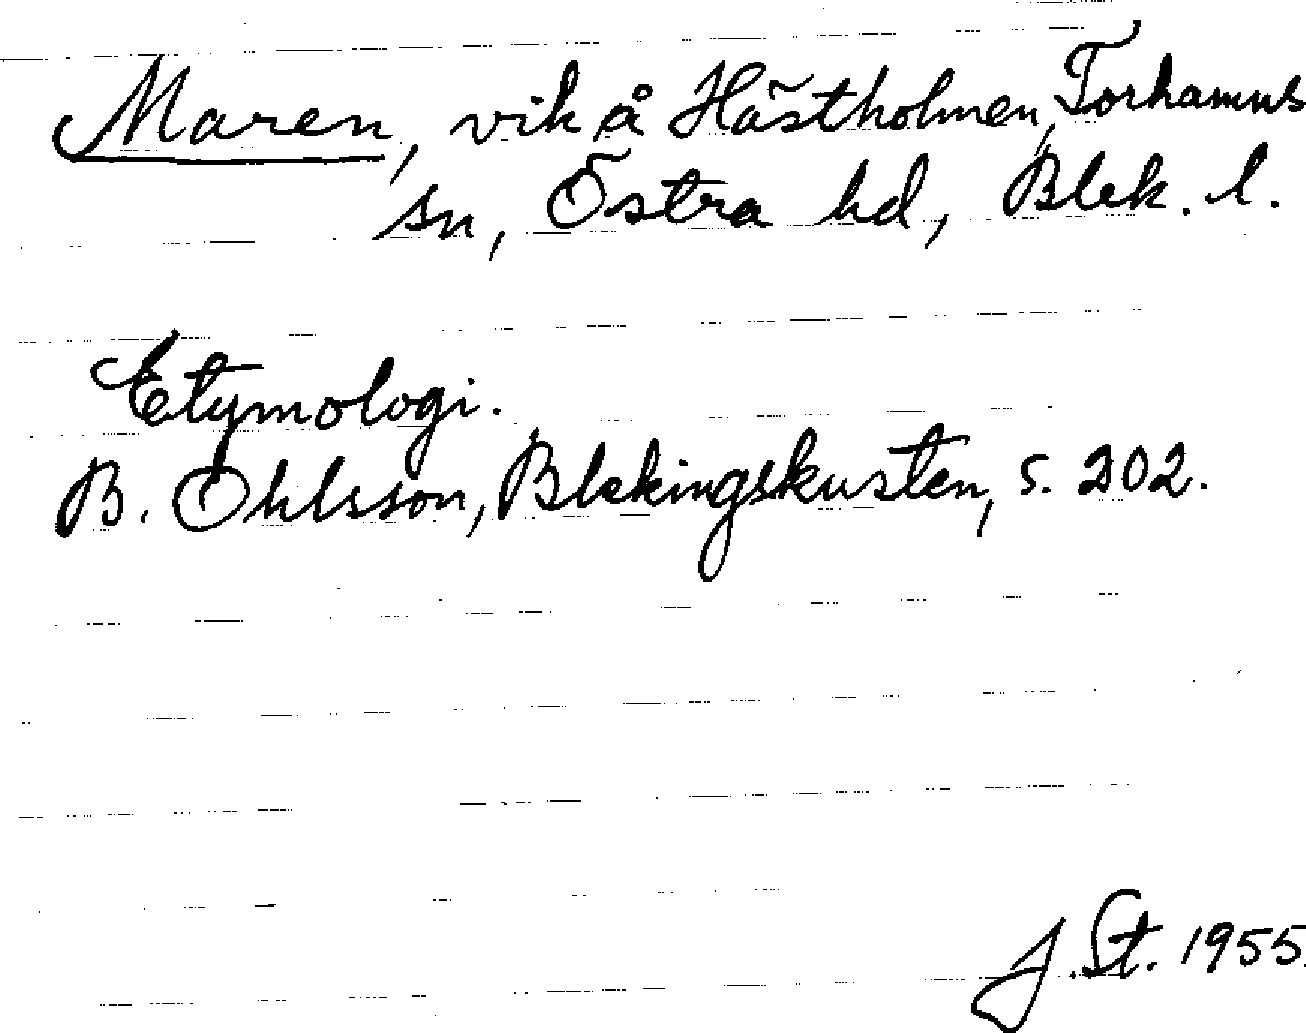 Maren, vik å Hästholmen, Torhamns
sn, Östra hd, Blek. l.
Etymologi.
B. Ohlsson, Blekingskusten, s. 202.
J. St. 1955.